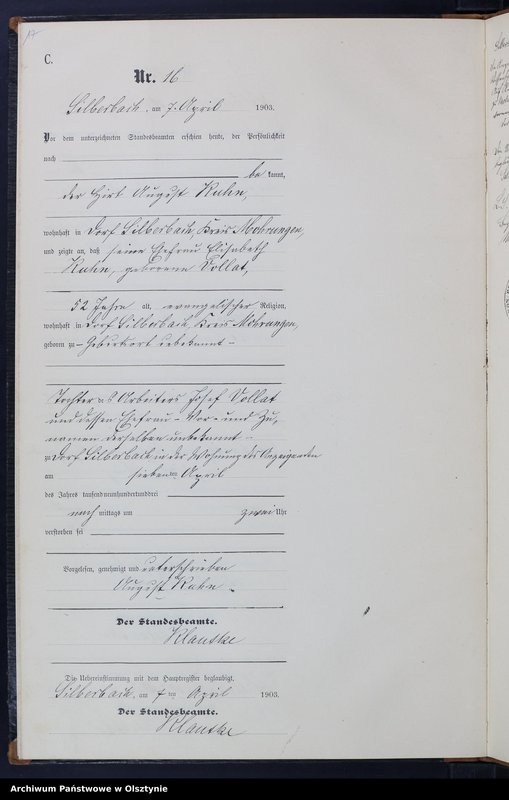 17
C.
Nr. 16
Silberbach, am 7. April 1903.
Vor dem unterzeichneten Standesbeamten erschien heute, der Persönlichkeit
nach
be kannt,
der Hirt August Kuhn,
wohnhaft in Dorf Silberbach, Kreis Mohrungen,
und zeigte an, daß seine Ehefrau Elisabeth
Kuhn, geborene Vollat,
52 Jahre alt, evangelischer Religion,
wohnhaft in Dorf Silberbach, Kreis Mohrungen,
geboren zu - Geburtsort unbekannt -
Tochter des Arbeiters Josef Vollat
und dessen Ehefrau - Vor- und Zu-
namen derselben unbekannt -
zu Dorf Silberbach in der Wohnung des Anzeigenden
am sieben ten April
des Jahres tausendneunhundertunddrei
nach mittags um zwei Uhr
verstorben sei
Vorgelesen, genehmigt und unterschrieben
August Kuhn.
Der Standesbeamte.
Klautke
Die Uebereinstimmung mit dem Hauptregister beglaubigt.
Silberbach, am 7 ten April 1903.
Der Standesbeamte.
Klautke
Archiwum Państwowe w Olsztynie